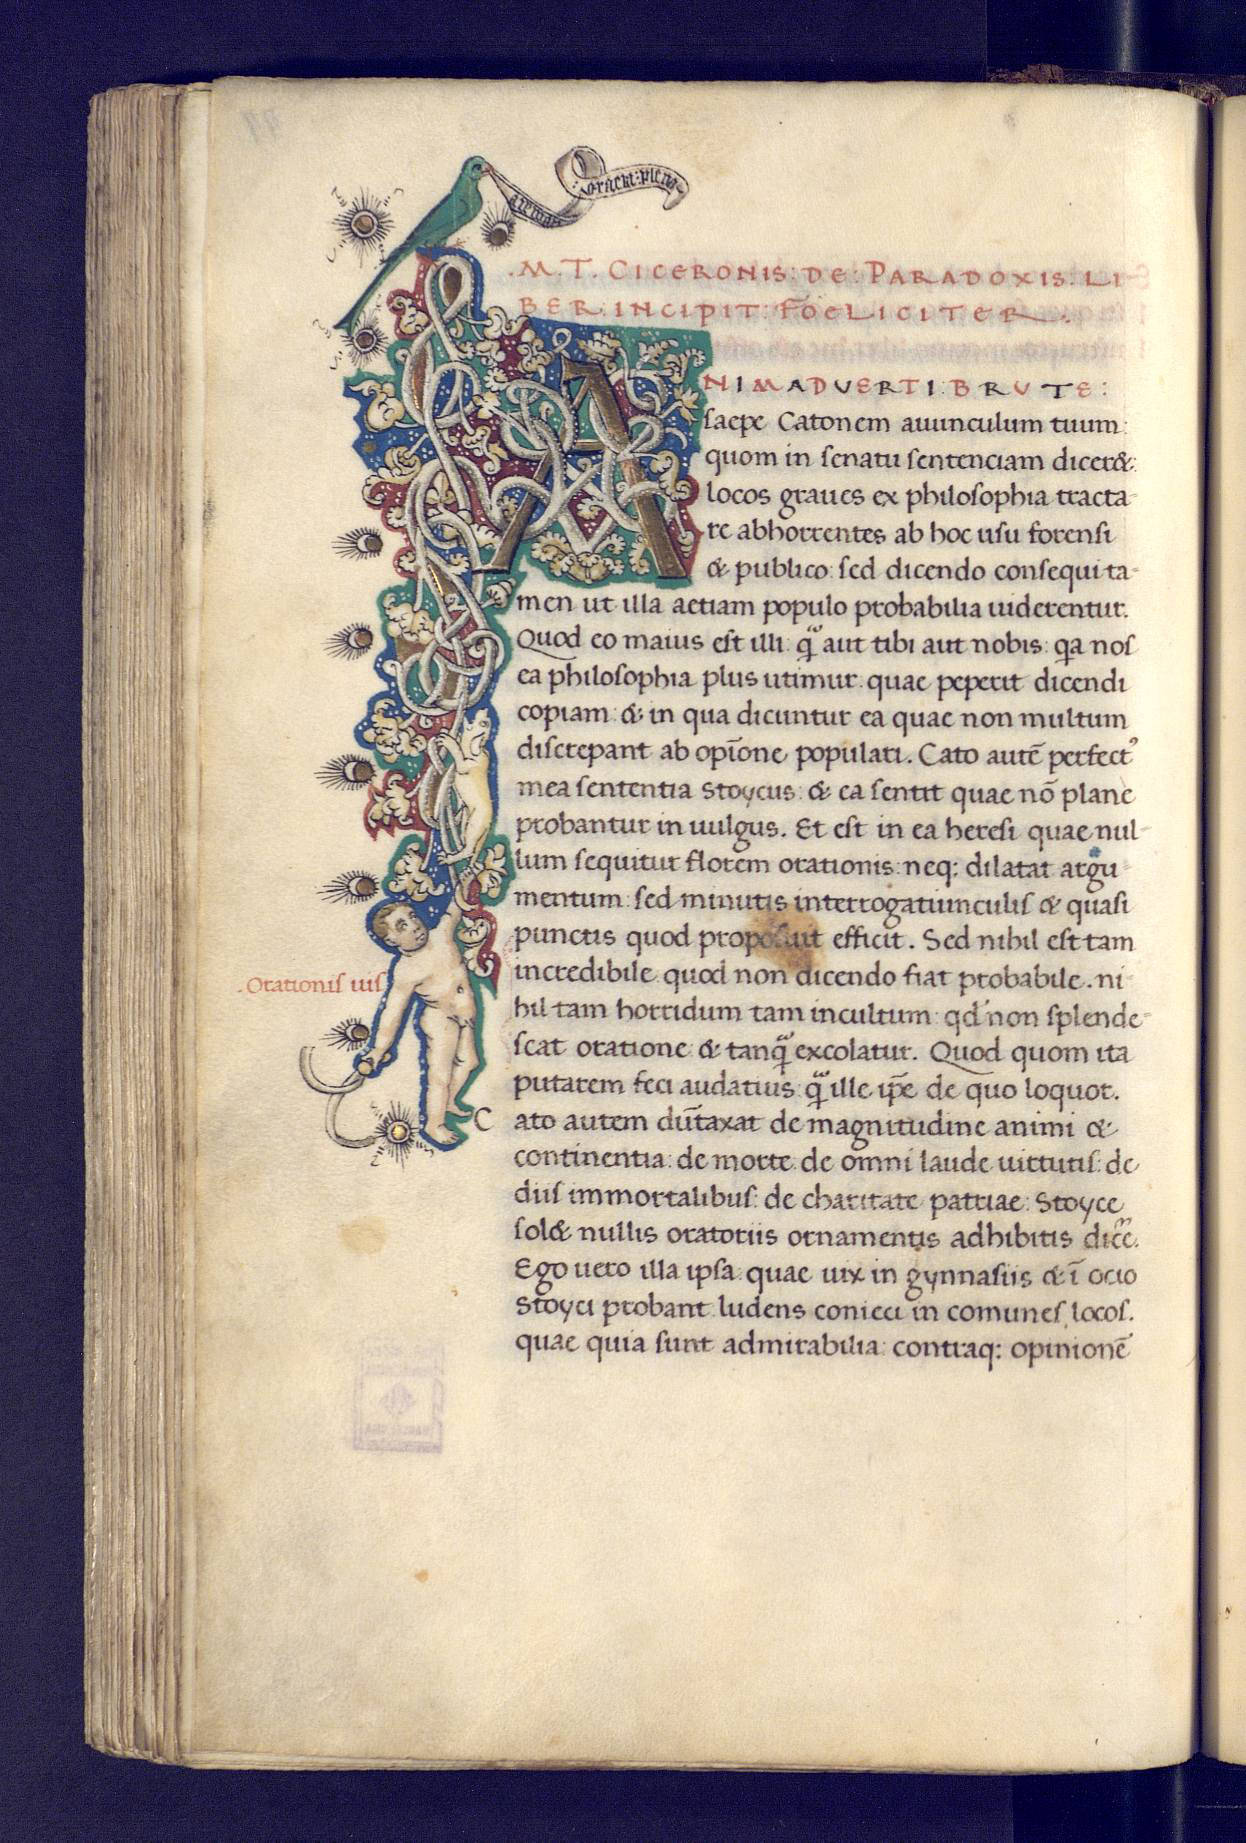 aue maria
gracia: plena
.M.T. CICERONIS: DE: PARADOXIS. LI-
BER: INCIPIT: FOELICITER.
NIMADVERTI: BRUTE:
saepe Catonem auunculum tuum:
quom in senatu sentenciam dicer&:
locos graues ex philosophia tracta-
re abhorrentes ab hoc usu forensi
& publico: sed dicendo consequi ta-
men ut illa aetiam populo probabilia uiderentur.
Quod eo maius est illi: qͣ̃ aut tibi aut nobis: qa nos
ea philosophia plus utimur: quae peperit dicendi
copiam: & in qua dicuntur ea quae non multum
discrepant ab opīone populari. Cato autē perfectꝰ
mea sententia stoycus: & ea sentit quae nō plane
probantur in uulgus. Et est in ea heresi quae nul-
lum sequitur florem orationis: neq; dilatat argu-
mentum: sed minutis interrogatiunculis & quasi
punctis quod proposuit efficit. Sed nihil est tam
incredibile quod non dicendo fiat probabile. ni-
.Orationis uis
hil tam horridum tam incultum: qd' non splende-
scat oratione & tanqͣ̃ excolatur. Quod quom ita
putarem feci audatius: qͣ̃ ille ip̄e de quo loquor.
C ato autem dūtaxat de magnitudine animi &
continentia: de morte: de omni laude uirtutis: de
diis immortalibus: de charitate patriae: Stoyce
sol& nullis oratoriis ornamentis adhibitis dicẽ.
Ego uero illa ipsa: quae uix in gynnasiis & ī ocio
Stoyci probant: ludens conieci in comunes locos.
quae quia sunt admirabilia: contraq; opinionē